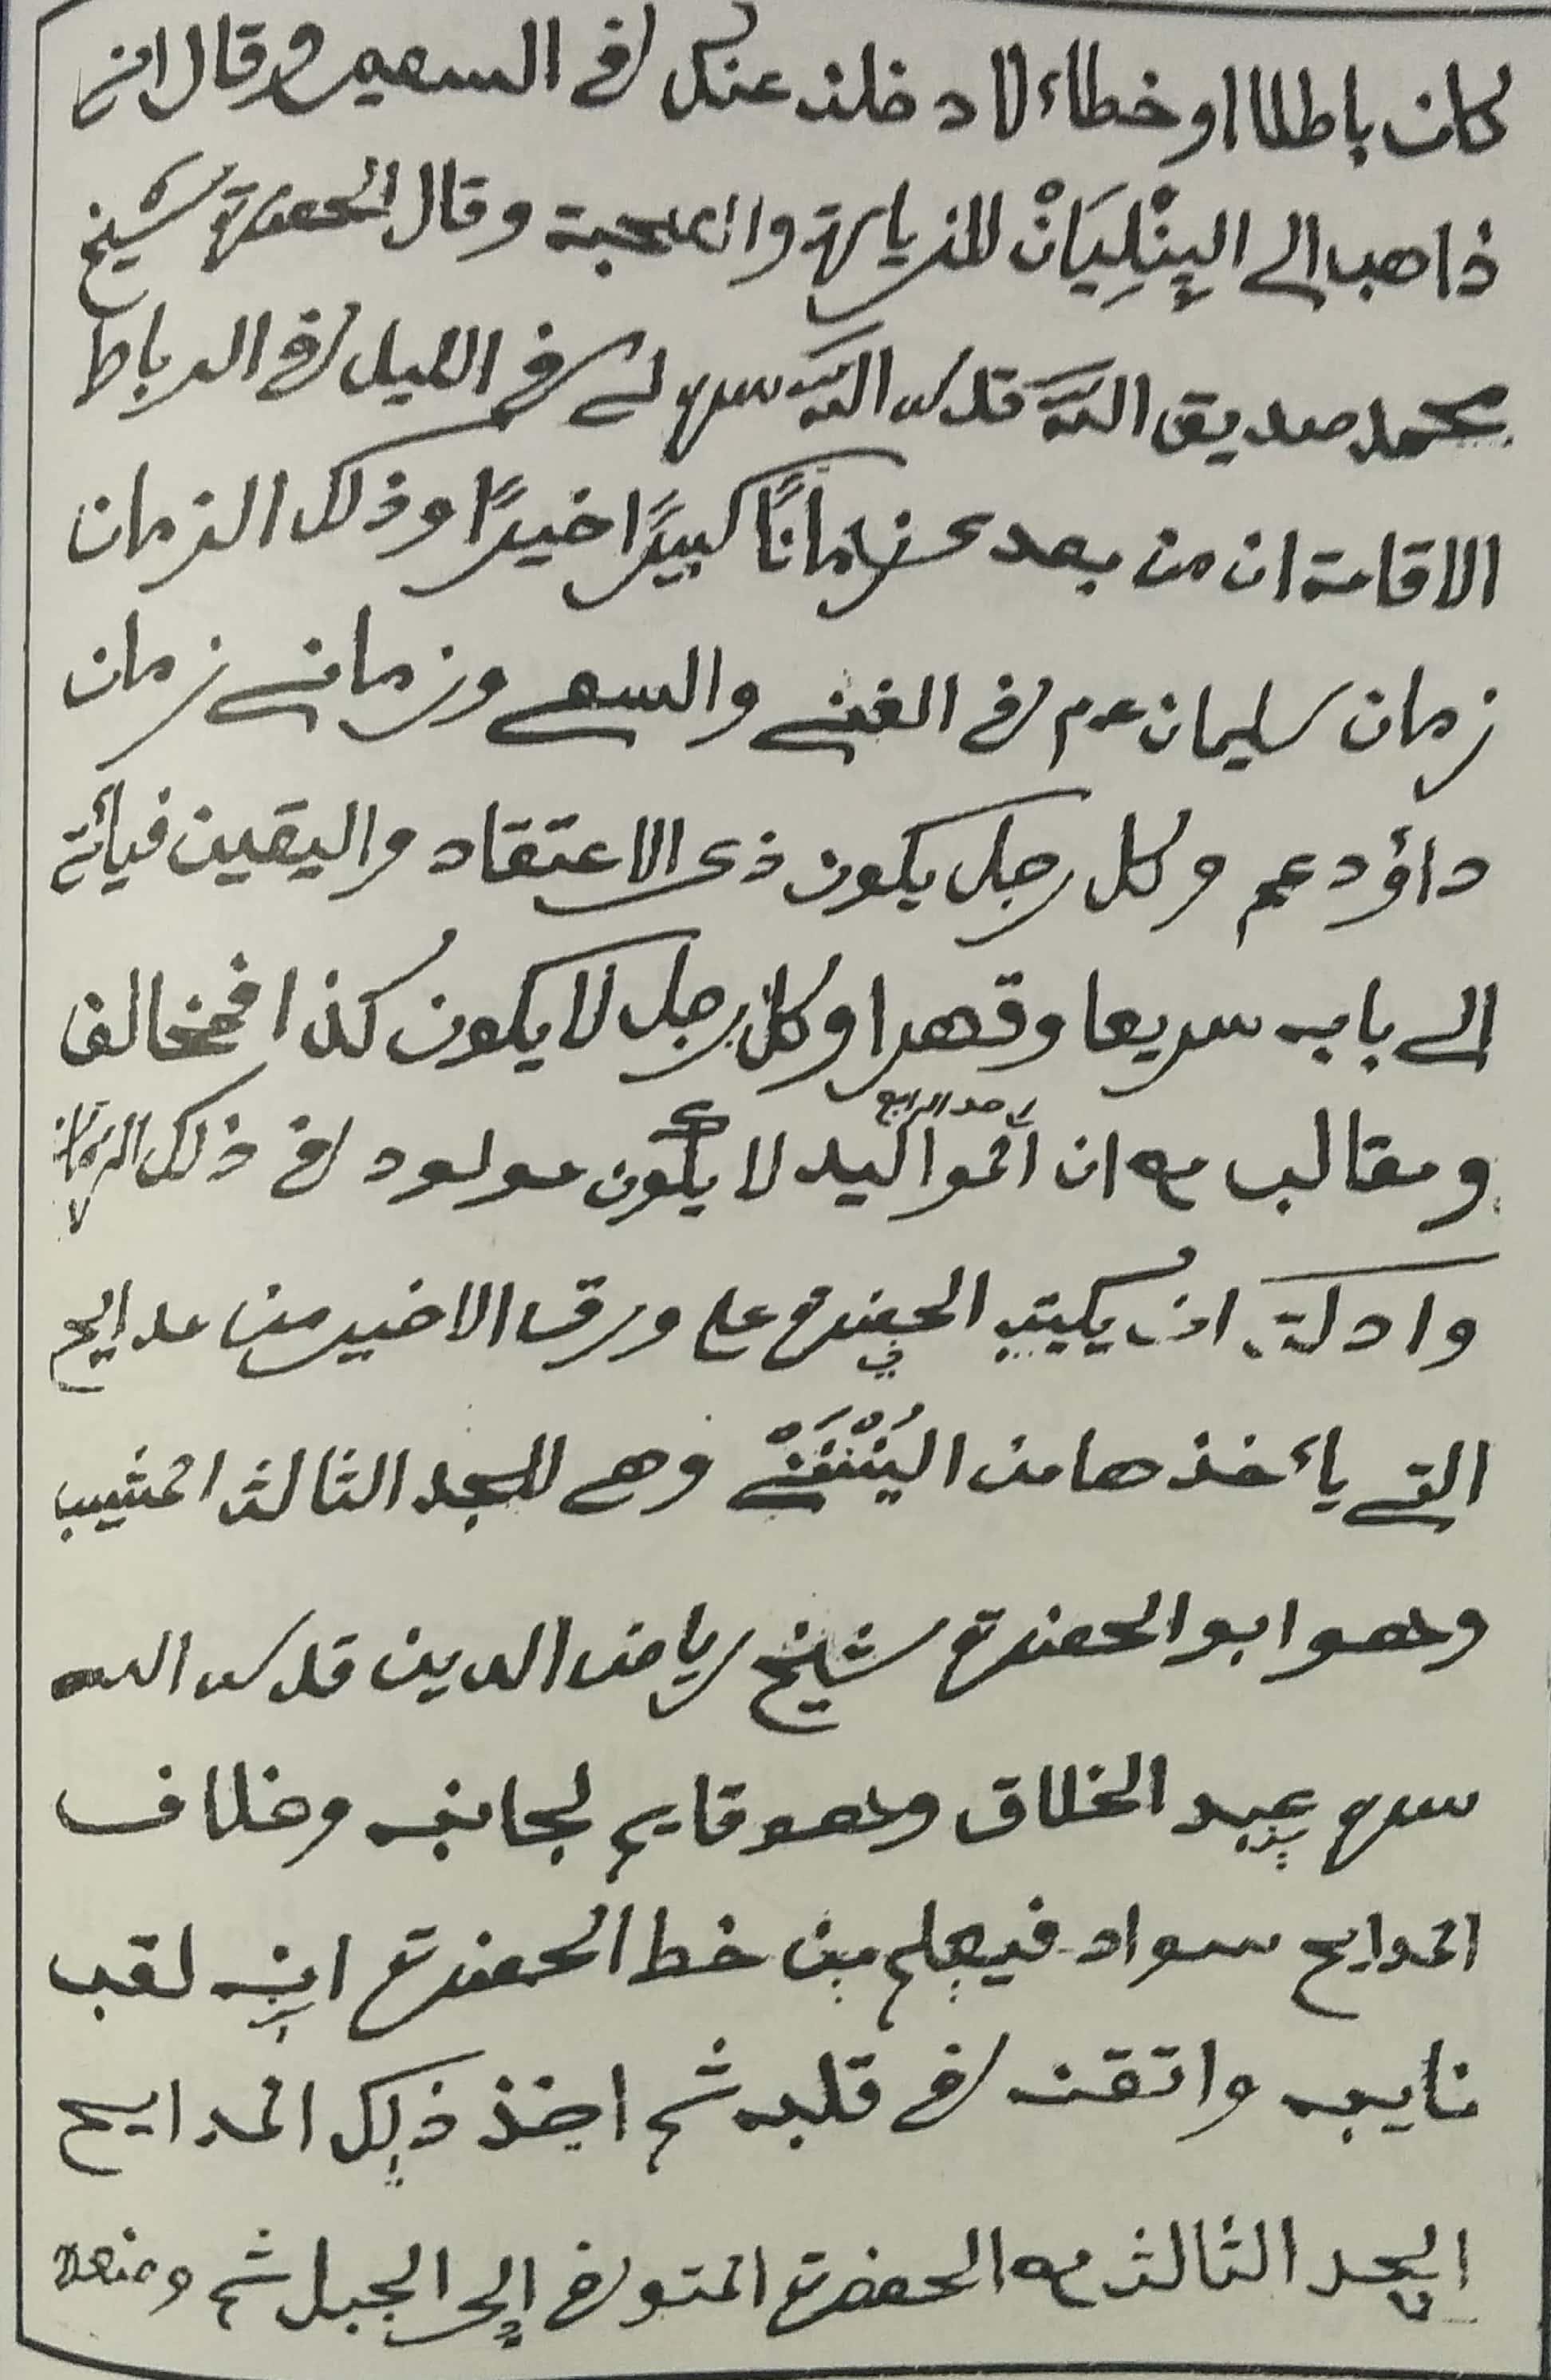 كان باطلا او خطاء لادخلن عنكل في السعير وقال اني
ذاهب الى الپنْلِيَانْ للزيارة والصحبة وقال الحضرة شيخ
محمد صديق اللّٰه قدس اللّٰه سره لي في الليل في الرباط
الاقامة ان من بعدى زمانًا كبيرًا خيرًا وذلك الزمان
زمان سليمان عم في الغنى والسعي وزماني زمان
داؤد عم وكل رجل يكون ذى الاعتقاد واليقين فيأتي
الى بابه سريعا وقهرا وكل رجل لا يكون كذا فمخالف
ومقالب ان المواليد لا يكون مولود في ذلك الزمان
وادلة ان يكتب الحضرة على ورق الاخير من مدايح
التي يأخذها من وهي للجد الثالث المثيب
وهو ابو الحضرة شيخ رياض الدين قدس الله
سره عبد الخلاق وهو قايم لجانبه وخلاف
المدايح سواد فيعلم من خط الحضرة انه لقب
نايبه واتقن في قلبه ثم اخذ ذلك المدايح
الجد الثالث الحضرة المتوفى الى الجبل ثم